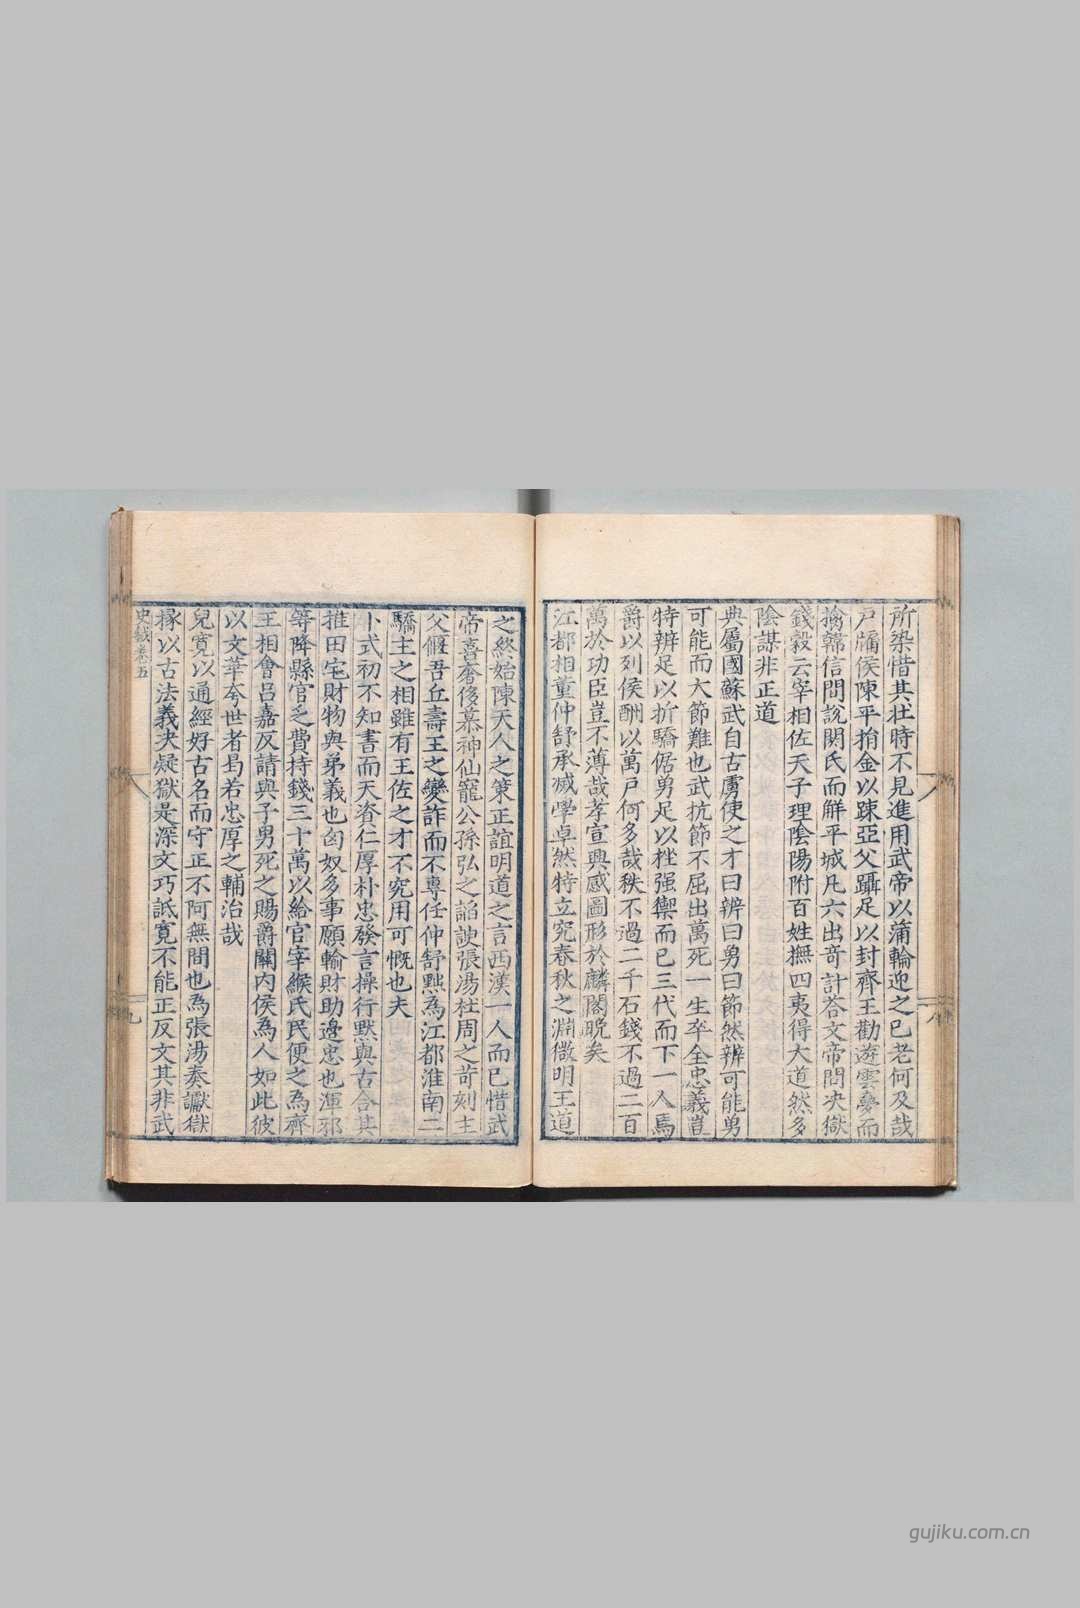 所染惜其壮時不見進用武帝以蒲輪迎之已老何及哉
戶牖侯陳平捐金以踈亞父躡足以封齊王勸遊雲夢而
擒韓信間說閼氏而解平城凡六出竒計荅文帝問决獄
錢穀云宰相佐天子理陰陽附百姓撫四夷得大道然多
陰謀非正道
典屬國蘇武自古虜使之才曰辨曰勇曰節然辨可能勇
可能而大節難也武抗節不屈出萬死一生卒全忠義豈
特辨足以折驕倨勇足以挫强禦而已三代而下一人焉
爵以列侯酬以萬戶何多哉秩不過二千石錢不過二百
萬於功臣豈不薄哉孝宣興感圖形於麟閣晚矣
江都相董仲舒承滅學卓然特立究春秋之淵微明王道
之終始陳天人之策正誼明道之言西漢一人而已惜武
帝喜奢侈慕神仙寵公孫弘之諂諛張湯杜周之苛刻主
父偃吾丘壽王之變詐而不專任仲舒點為江都淮南二
驕主之相雖有王佐之才不究用可慨也夫
卜式初不知書而天資仁厚朴忠發言操行默與古合其
推田宅財物與弟義也匈奴多事願輸財助邊忠也渾邪
等降縣官乏費持錢三十萬以給官宰緱氏民便之為齊
王相會呂嘉反請與子男死之賜爵關內侯為人如此彼
以文華夸世者曷若忠厚之輔治哉
兒寛以通經好古名而守正不阿無間也為張湯奏讞獄
掾以古法義决疑獄是深文巧詆寛不能正反文其非武
史鉞卷五
八
九
gujiku.com.cn